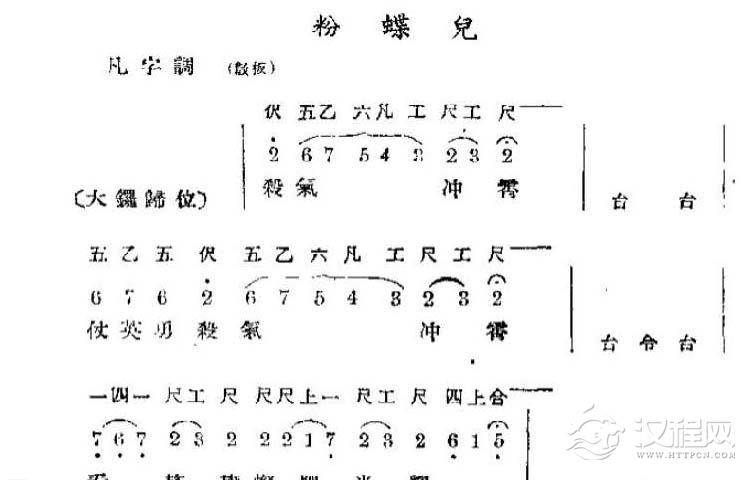 粉 蝶 兒
凡字調 (散板)
伬 五乙 六凡 工 尺工 尺
2 6 7 5 4 2 2 3 2
(大鑼歸位) 殺氣 冲 霄 台 台
五乙五伬五乙六凡工尺工尺
6 7 6 2 6 7 5 4 3 2 3 2
仗英勇殺氣 冲 霄 台 令 台
一四一 尺工 尺 尺尺上一 尺工 尺 四上合
7 6 7 2 3 2 2 2 1 7 2 3 2 6 1 5
汉程网